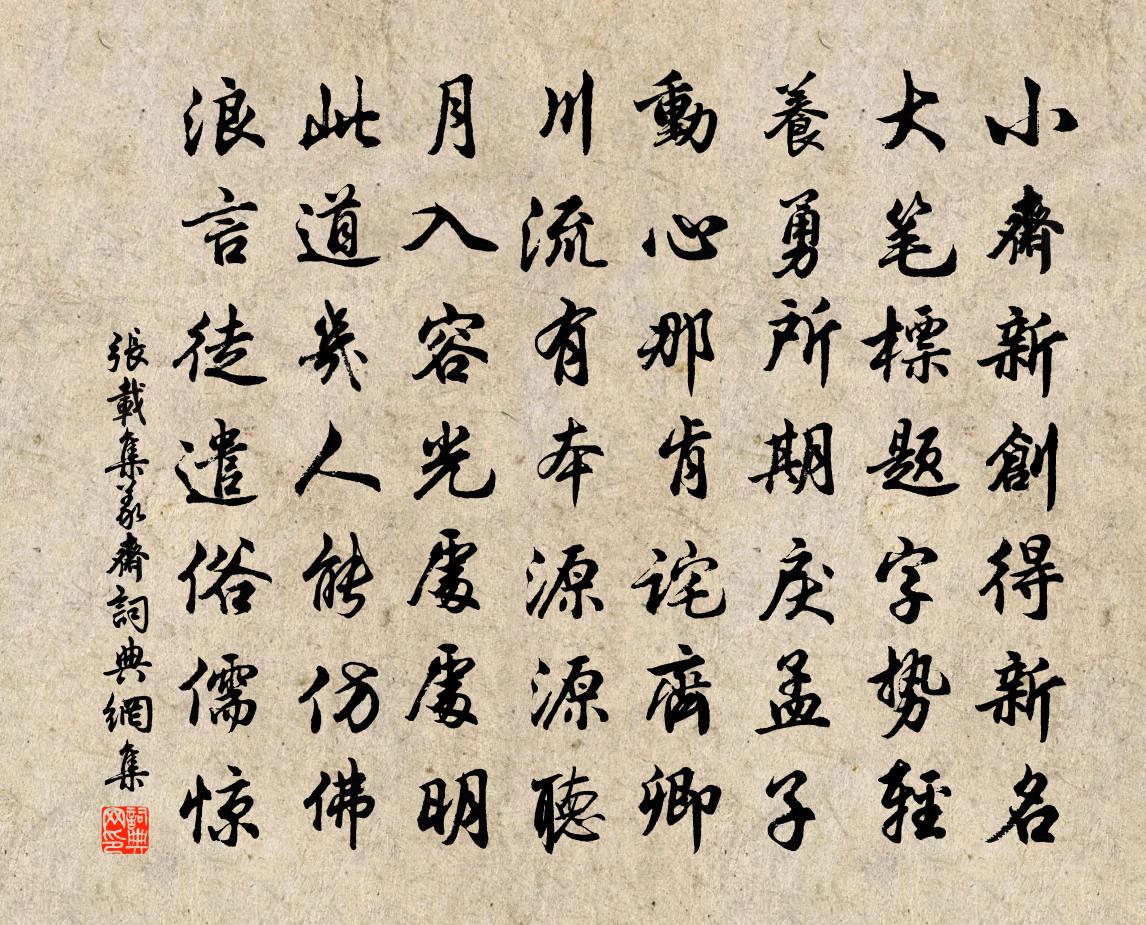 小齋新創得新名
大笔標题字势輕
養勇所期戾孟子
動心那肯詫齊卿
川流有本源源聽
月入容光處處明
此道幾人能仿佛
浪言徒遣俗儒惊
張載集義齋詞典網集
詞典网印